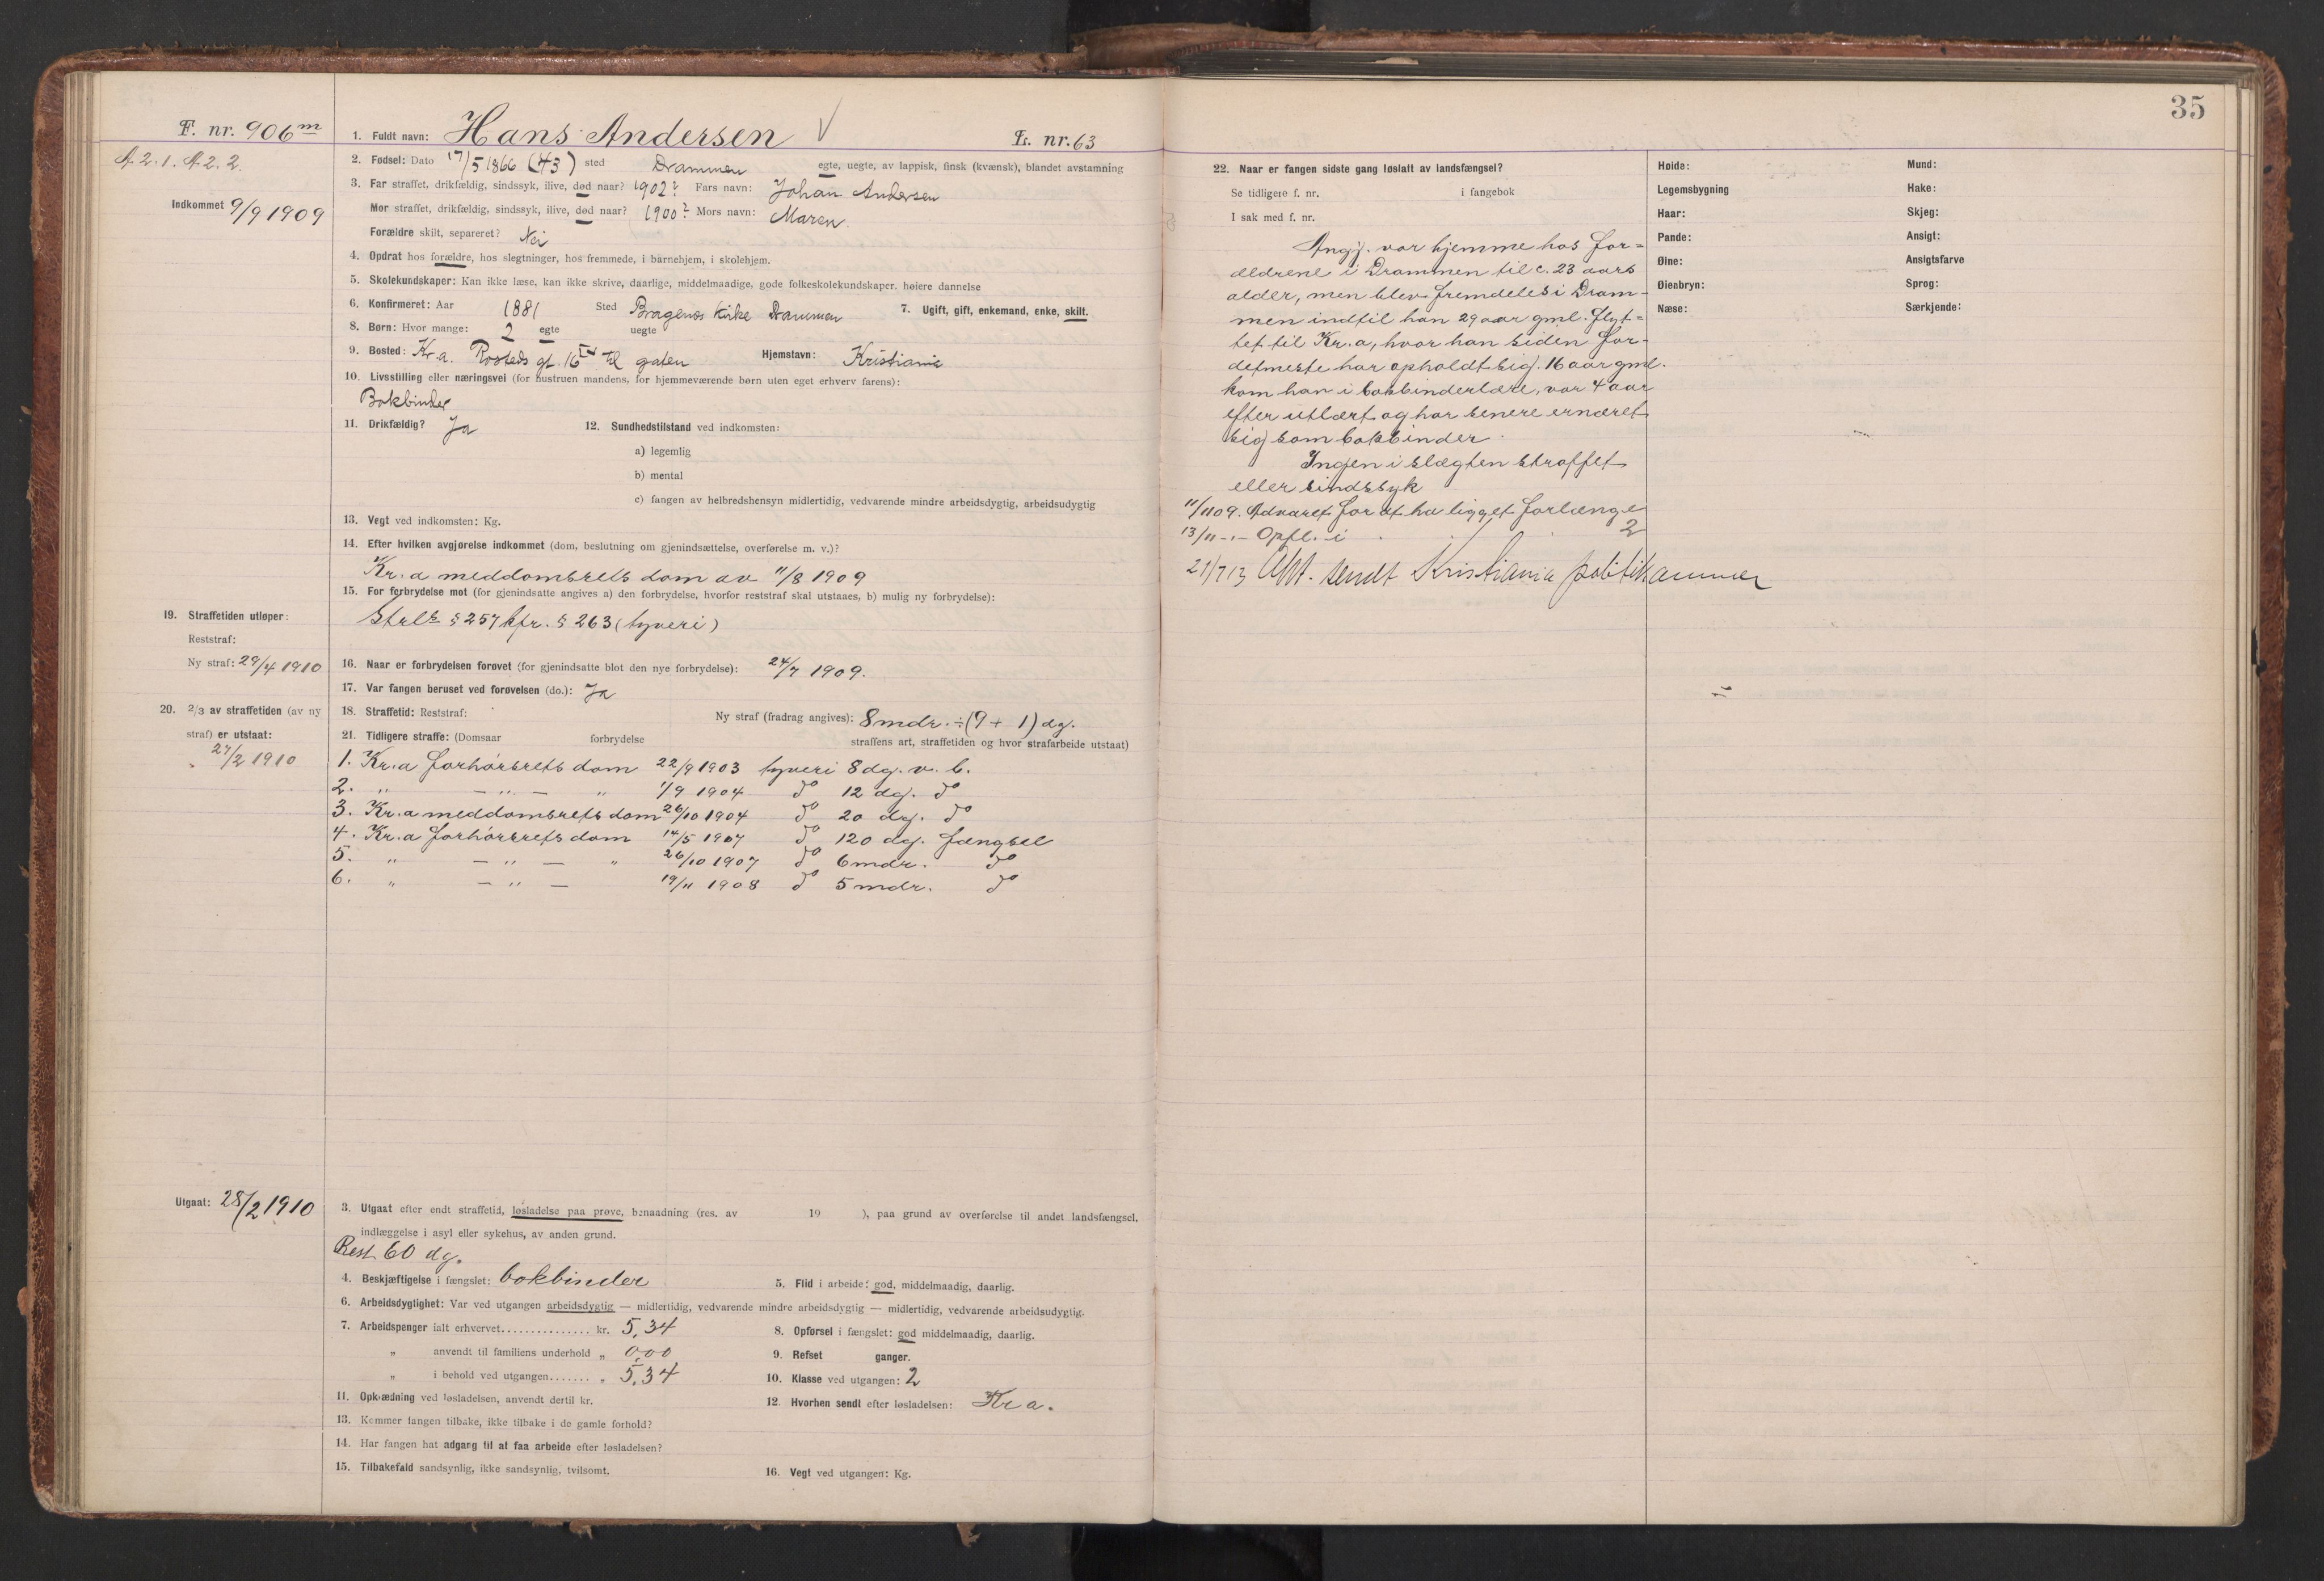 F. nr. 906 m
A. 2. 1. A. 2. 2.
Indkommet 9/9 1909
1. Fuldt navn: Hans Andersen V L. nr. 63
2. Fødsel: Dato 17/5 1866 (43) sted Drammen egte, uegte, av lappisk, finsk (kvænsk), blandet avstamning
3. Far straffet, drikfældig, sindssyk, ilive, død naar? 1902? Fars navn: Johan Andersen
Mor straffet, drikfældig, sindssyk, ilive, død naar? 1900? Mors navn: Maren
Forældre skilt, separeret? Nei
4. Opdrat hos forældre, hos slegtninger, hos fremmede, i barnehjem, i skolehjem.
5. Skolekundskaper: Kan ikke læse, kan ikke skrive, daarlige, middelmaadige, gode folkeskolekundskaper. høiere dannelse
6. Konfirmeret: Aar 1881 Sted Bragenes Kirke Drammen 7. Ugift, gift, enkemand, enke, skilt.
8. Børn: Hvor mange: 2 egte uegte
9. Bosted: Kr.a. Rosteds gt. 16 IV til gaten Hjemstavn: Kristiania
10. Livsstilling eller næringsvei (for hustruen mandens, for hjemmeværende børn uten eget erhverv farens):
Bokbinder
11. Drikfældig? Ja 12. Sundhedstilstand ved indkomsten:
a) legemlig
b) mental
c) fangen av helbredshensyn midlertidig, vedvarende mindre arbeidsdygtig, arbeidsudygtig
13. Vegt ved indkomsten: Kg.
14. Efter hvilken avgjørelse indkommet (dom, beslutning om gjenindsættelse, overførelse m. v.)?
Kr.a meddomsrets dom av 11/8 1909
15. For forbrydelse mot (for gjenindsatte angives a) den forbrydelse, hvorfor reststraf skal utstaaes, b) mulig ny forbrydelse):
§ 257 kfr. § 263 (tyveri)
19. Straffetiden utløper:
Reststraf:
Ny straf: 29/4 1910
16. Naar er forbrydelsen forøvet (for gjenindsatte blot den nye forbrydelse): 24/7 1909.
17. Var fangen beruset ved forøvelsen (do.): Ja
20. 2/3 av straffetiden (av ny
straf) er utstaat:
27/2 1910
18. Straffetid: Reststraf: Ny straf (fradrag angives): 8 mdr. ÷ (9 + 1) dg.
21. Tidligere straffe: (Domsaar forbrydelse straffens art, straffetiden og hvor strafarbeide utstaat)
1. Kr.a forhørsrets dom 22/9 1903 tyveri 8 dg. v. b.
2. " — " — " 1/9 1904 do 12 dg. do
3. Kr.a meddomsrets dom 26/10 1904 do 20 dg. do
4. Kr.a forhørsrets dom 14/5 1907 do 120 dg. fængsel
5. " — " — " 26/10 1907 do 6 mdr. do
6. " — " — 19/11 1908 do 5 mdr. do
Utgaat: 28/2 1910
3. Utgaat efter endt straffetid, løsladelse paa prøve, benaadning (res. av 19 ), paa grund av overførelse til andet landsfængsel,
indlæggelse i asyl eller sykehus, av anden grund.
Rest 60 dg.
4. Beskjæftigelse i fængslet: bokbinder 5. Flid i arbeide: god, middelmaadig, daarlig.
6. Arbeidsdygtighet: Var ved utgangen arbeidsdygtig — midlertidig, vedvarende mindre arbeidsdygtig — midlertidig, vedvarende arbeidsudygtig.
7. Arbeidspenger ialt erhvervet............... kr. 5,34 8. Opførsel i fængslet: god middelmaadig, daarlig.
" anvendt til familiens underhold " 0,00 9. Refset ganger.
" i behold ved utgangen....... " 5,34 10. Klasse ved utgangen: 2
11. Opklædning ved løsladelsen, anvendt dertil kr. 12. Hvorhen sendt efter løsladelsen: Kr a.
13. Kommer fangen tilbake, ikke tilbake i de gamle forhold?
14. Har fangen hat adgang til at faa arbeide efter løsladelsen?
15. Tilbakefald sandsynlig, ikke sandsynlig, tvilsomt. 16. Vegt ved utgangen: Kg.
35
22. Naar er fangen sidste gang løslatt av landsfængsel?
Se tidligere f. nr. i fangebok
I sak med f. nr.
Angj. var hjemme hos for=
ældrene i Drammen til c. 23 aars
alder, men blev fremdeles i Dram-
men indtil han 29 aar gml. flyt=
tet til Kr.a, hvor han siden for-
detmeste har opholdt sig. 16 aar gml.
kom han i bokbinderlære, var 4 aar
efter utlært og har senere ernæret
sig som bokbinder.
Ingen i slægten straffet
eller sindssyk
11/11 09. Advaret for at ha ligget forlænge
13/11 -.- Opfl. i 2
21/7 13 Akt. sendt Kristiania politikammer
Høide: Mund:
Legemsbygning Hake:
Haar: Skjeg:
Pande: Ansigt:
Øine: Ansigtsfarve
Øienbryn: Sprog:
Næse: Særkjende: